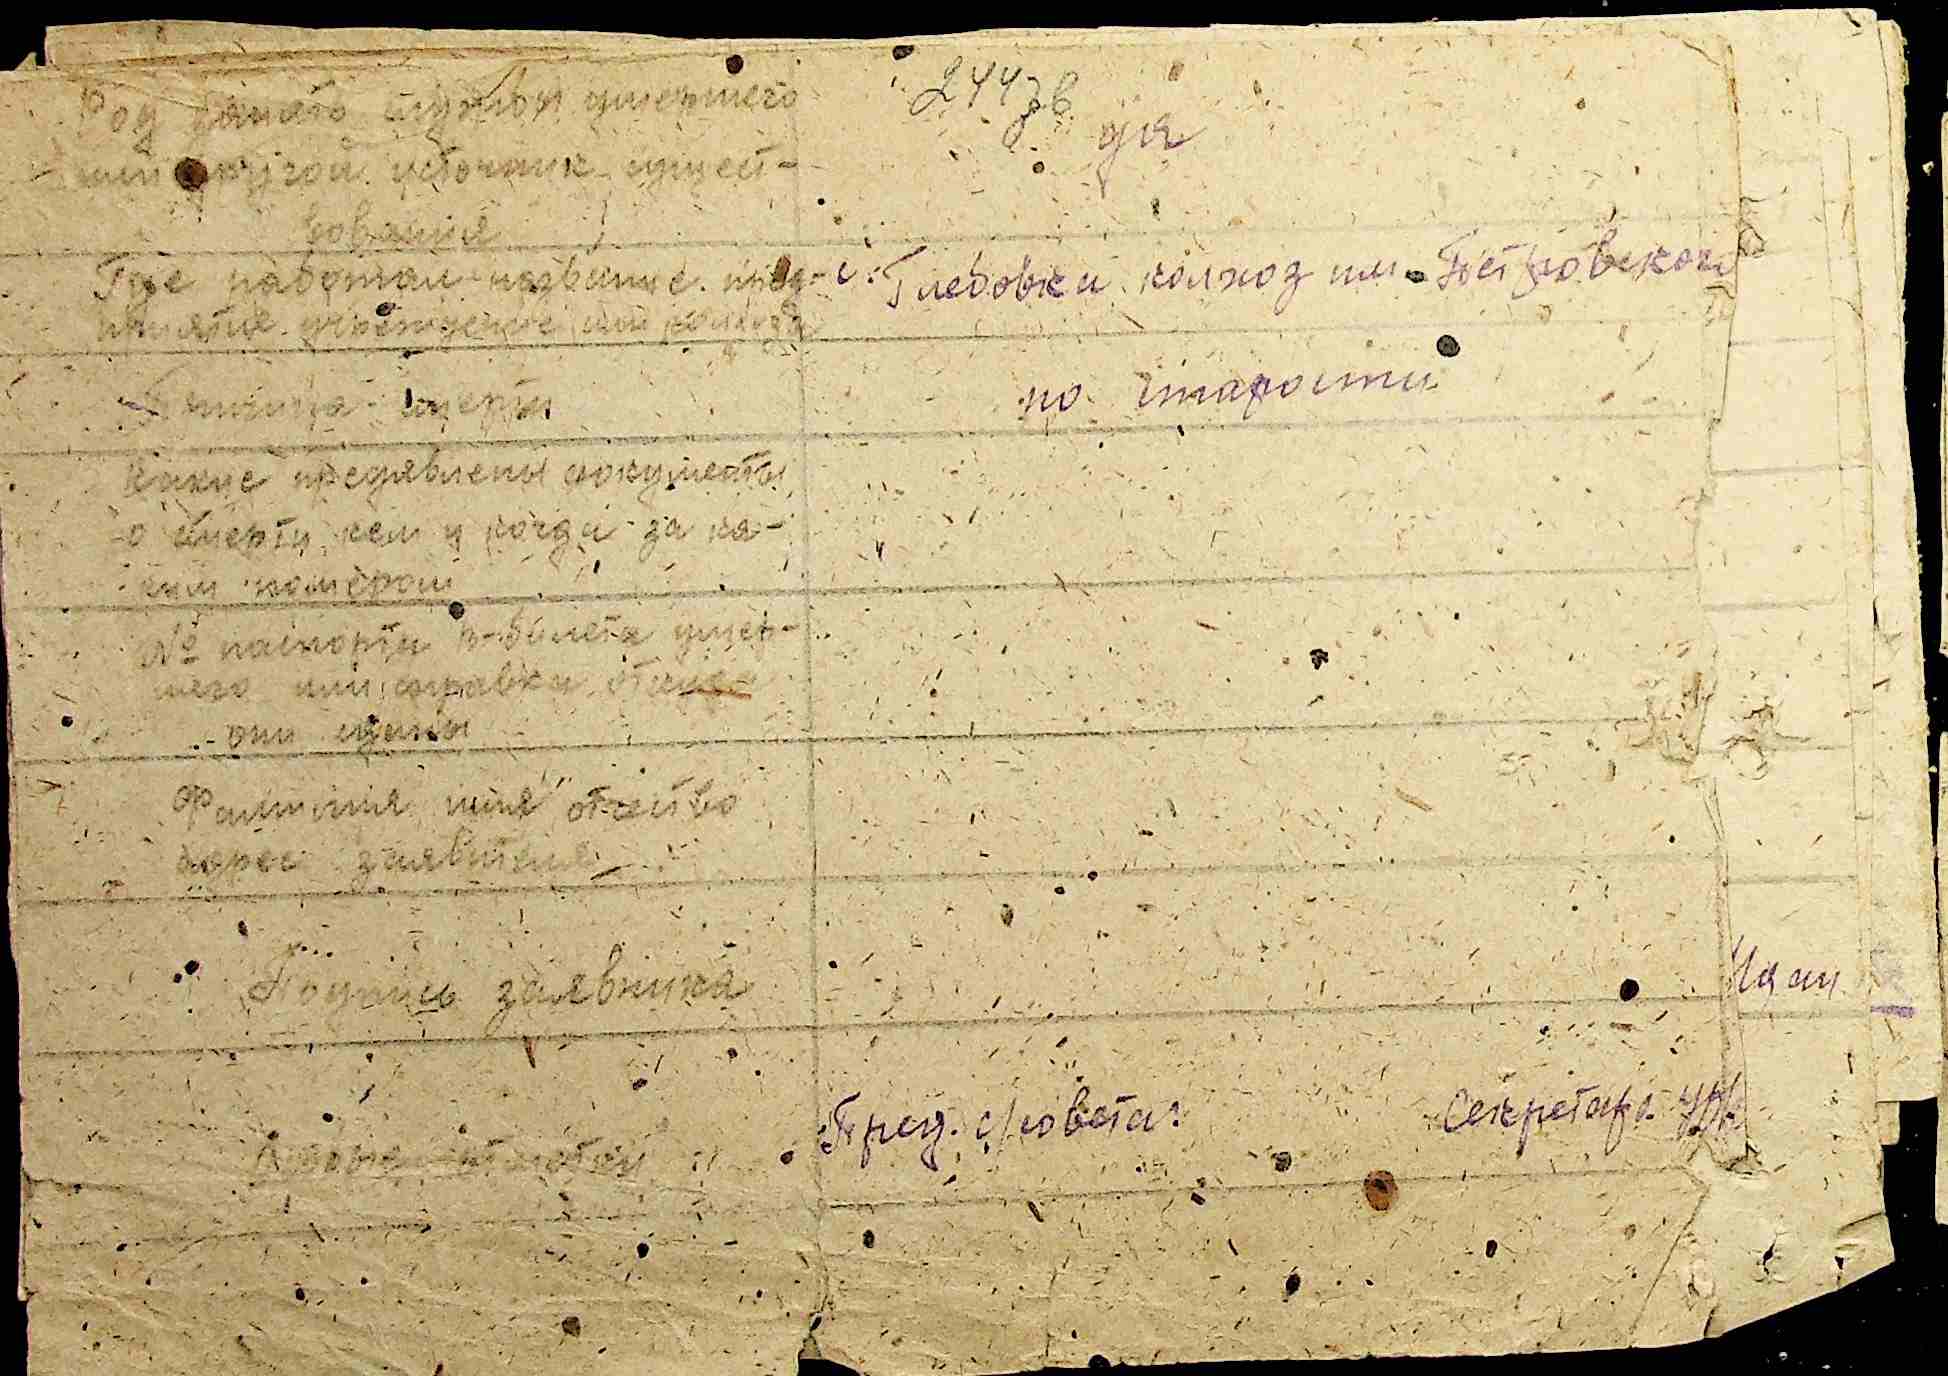 244 зв
да
Род занят служби умершего
или другой источник сущест-
вования
Где работал название пред-
приятия учреждение или колхоза
с. Глебовка колхоз им Петровского
Причина смерти
по старости
Какие предявлены документы
о смерти кем и когда за ка-
ким номером
№ паспорта в-билета умер-
шего или справки
они
Фамилия имя отчество
адрес заявителя
Подпись заявника
Идин
Пред. с/совета:
Секретарь
отметки